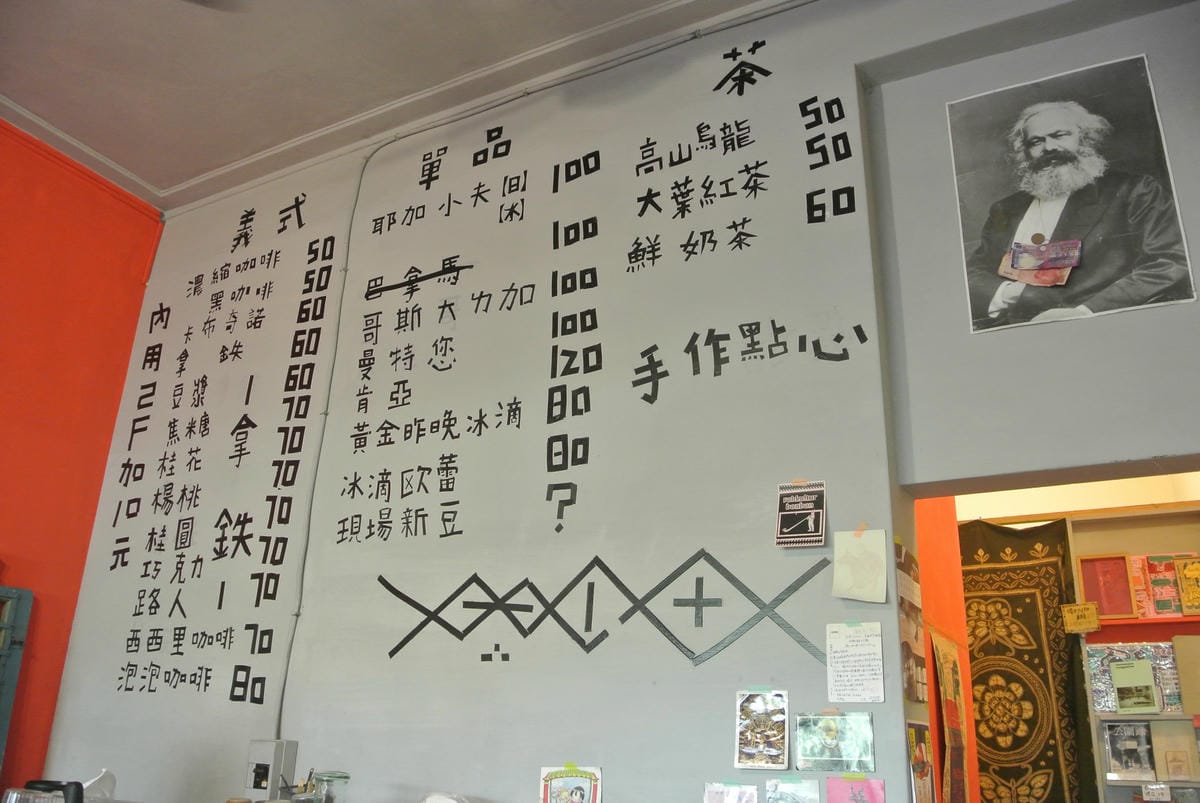 義式
濃縮咖啡 50
黑咖啡 50
卡布奇諾 60
拿鉄 60
豆漿 60
焦糖 70
桂花 70
楊桃 70
桂圓 70
巧克力 70
路人 70
|拿鉄|
西西里咖啡 70
泡泡咖啡 80
內用2F加10元
單品
耶加小夫【日】【水】 100
巴拿馬 100
哥斯大力加 100
曼特您 100
肯亞 120
黃金昨晚冰滴 80
冰滴欧蕾 80
現場新豆 ?
茶
高山烏龍 50
大葉紅茶 50
鮮奶茶 60
手作點心